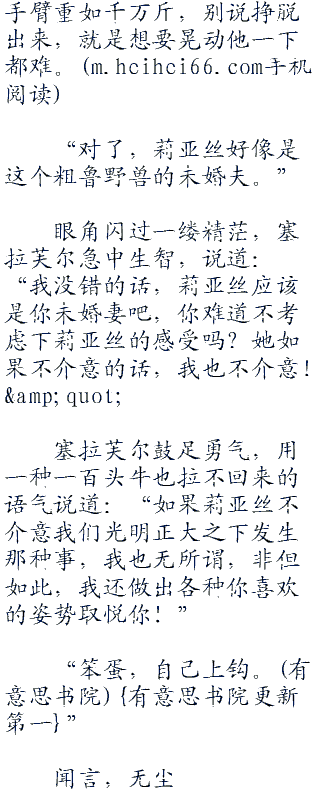 手臂重如千万斤，别说挣脱
出来，就是想要晃动他一下
都难。(m.hcihci66.com手机
阅读)
“对了，莉亚丝好像是
这个粗鲁野兽的未婚夫。”
眼角闪过一缕精茫，塞
拉芙尔急中生智，说道：
“我没错的话，莉亚丝应该
是你未婚妻吧，你难道不考
虑下莉亚丝的感受吗？她如
果不介意的话，我也不介意！
&amp;quot;
塞拉芙尔鼓足勇气，用
一种一百头牛也拉不回来的
语气说道：“如果莉亚丝不
介意我们光明正大之下发生
那种事，我也无所谓，非但
如此，我还做出各种你喜欢
的姿势取悦你！”
“笨蛋，自己上钩。(有
意思书院) {有意思书院更新
第一}”
闻言，无尘